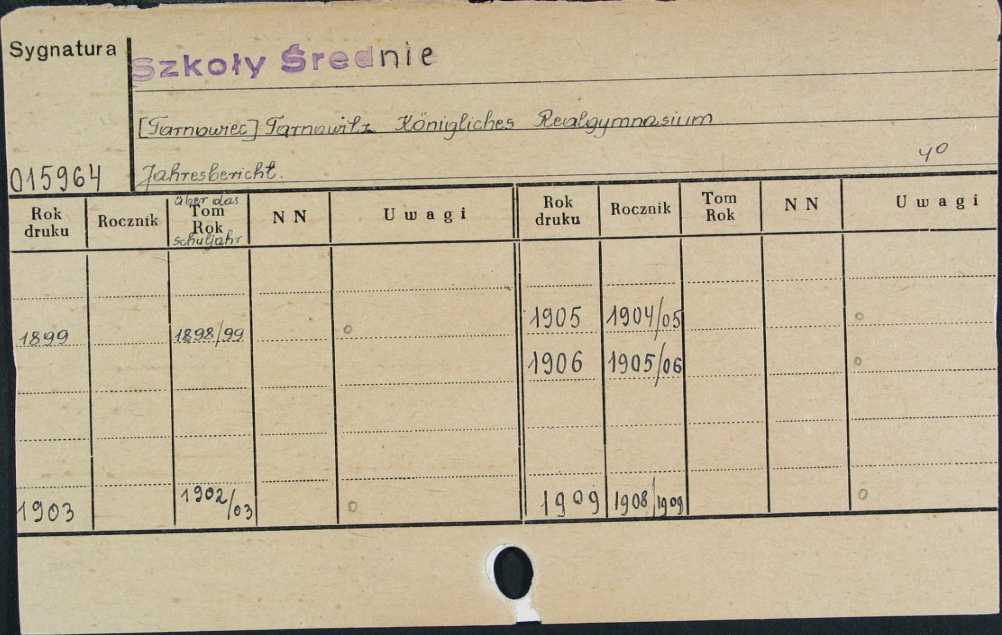 Sygnatura
Szkoły Średnie
[Tarnowiec] Tarnowitz Königliches Realgymnasium
40
015964 Jahresbericht.
über das
Rok druku Rocznik Tom Rok NN Uwagi Rok druku Rocznik Tom Rok NN Uwagi
schuljahr
1899 1898/99 o 1905 1904/05 o
1906 1905/06 o
1903 1902/03 o 1909 1908/1909 o